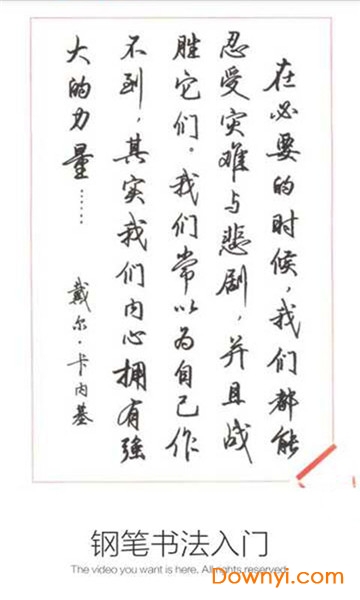 在必要的时候，我们都能
忍受灾难与悲剧，并且战
胜它们。我们常以为自己作
不到，其实我们内心拥有强
大的力量……
戴尔·卡内基
钢笔书法入门
The video you want is here. All rights reserved.
Downyi.com